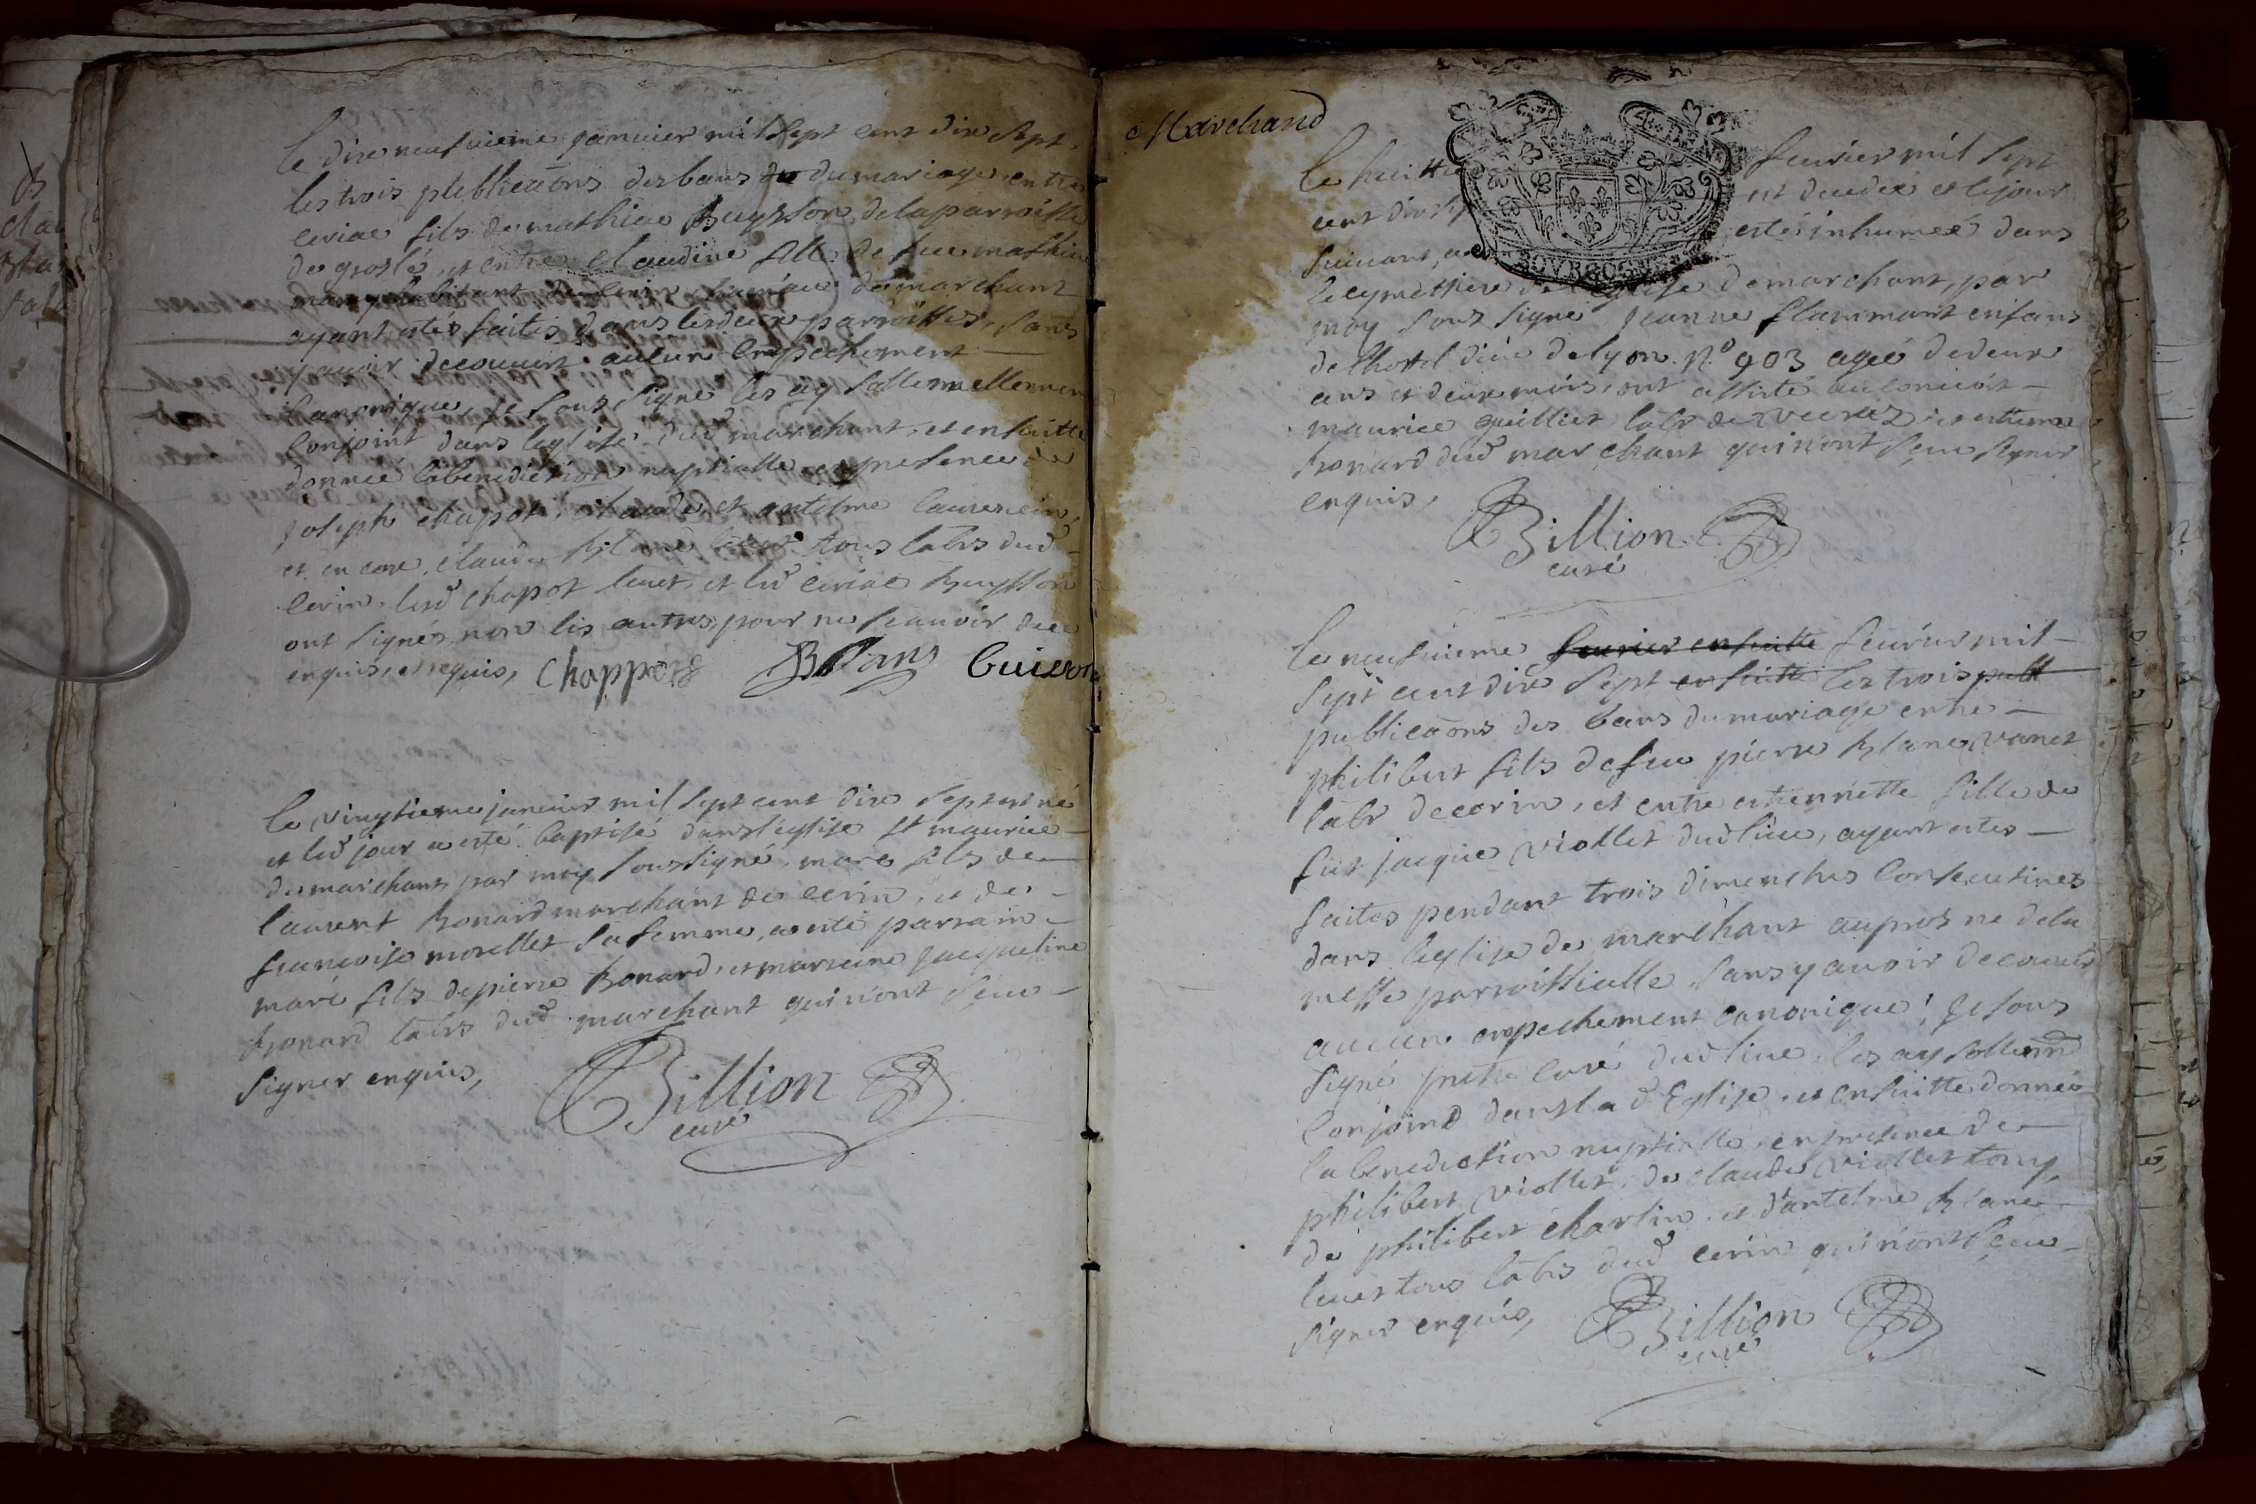 le dixe neufvieme janvier mil sept cent dix sept
les trois publicatons des bans du mariage entre
ceriac fils de mathieu Buysson de la parroisse
de groslé, et entre claudine fille de feu mathieu
de marchant
ayant estés faites dans les deux parroisses, sans
y avoir decouvert aucun empechement
canonique, je sous signé les ay sollemnellement
conjoint dans leglise dud marchant, et ensuitte
donnée la benediction nuptialle en presence de
joseph chapot, claude, et antelme
et encore claude blanc levet tous labrs dud
cerin, lesd chapot levet, et led ceriac buysson
ont signés non les autres pour ne scavoir de ce
enquis, et requis, Chappot BLanc Buisson
le vingtieme janvier mil sept cent dixe sept est né
et led jour a esté baptisé dans léglise st maurice
de marchant par moy sous signé, marc fils de
laurent bonard marchant de cerin, et de
francoise morellet sa femme, a esté parrain
marc fils de pierre bonard, et marreine jacqueline
bonard labrs dud marchant qui n'ont sceu
signer enquis,
Billion
curé
Marchand
le huitti fevrier mil sept
cent dix sept est decedée et le jour
suivant, a esté inhumée dans
le cymettiere de leglise de marchant, par
moy sous signé jeanne flammant enfans
de lhostel dieu de lyon. No 903 agée de deux
ans et deux mois, ont assisté au convoit
maurice guillier labr de
bonard dud marchant qui n'ont sçeu signer
enquis,
Billion
curé
le neufvieme fevrier ensuitte fevrier mil
sept cent dixe sept ensuitte les trois publ
publicaons des bans du mariage entre
philibert fils de feu pierre blanc vanet
labr de cerin, et entre estiennette fille de
fut jacque viollet dud lieu, ayant estes
faites pendant trois dimenches consecutives
dans leglise de marchant au prosne de la
messe parroissialle, sans y avoir decouvert
aucun empechement canonique; je sous
signé pretre curé dud lieu les ay sollemnt
conjoint dans lad Eglise, et ensuitte donnée
la benediction nuptialle, en presence de
philibert viollet, de claude viollet tony,
de philibert charlin et d'antelme blanc
levet tous labrs dud cerin qui n'ont sçeu
signer enquis,
Billion
curé